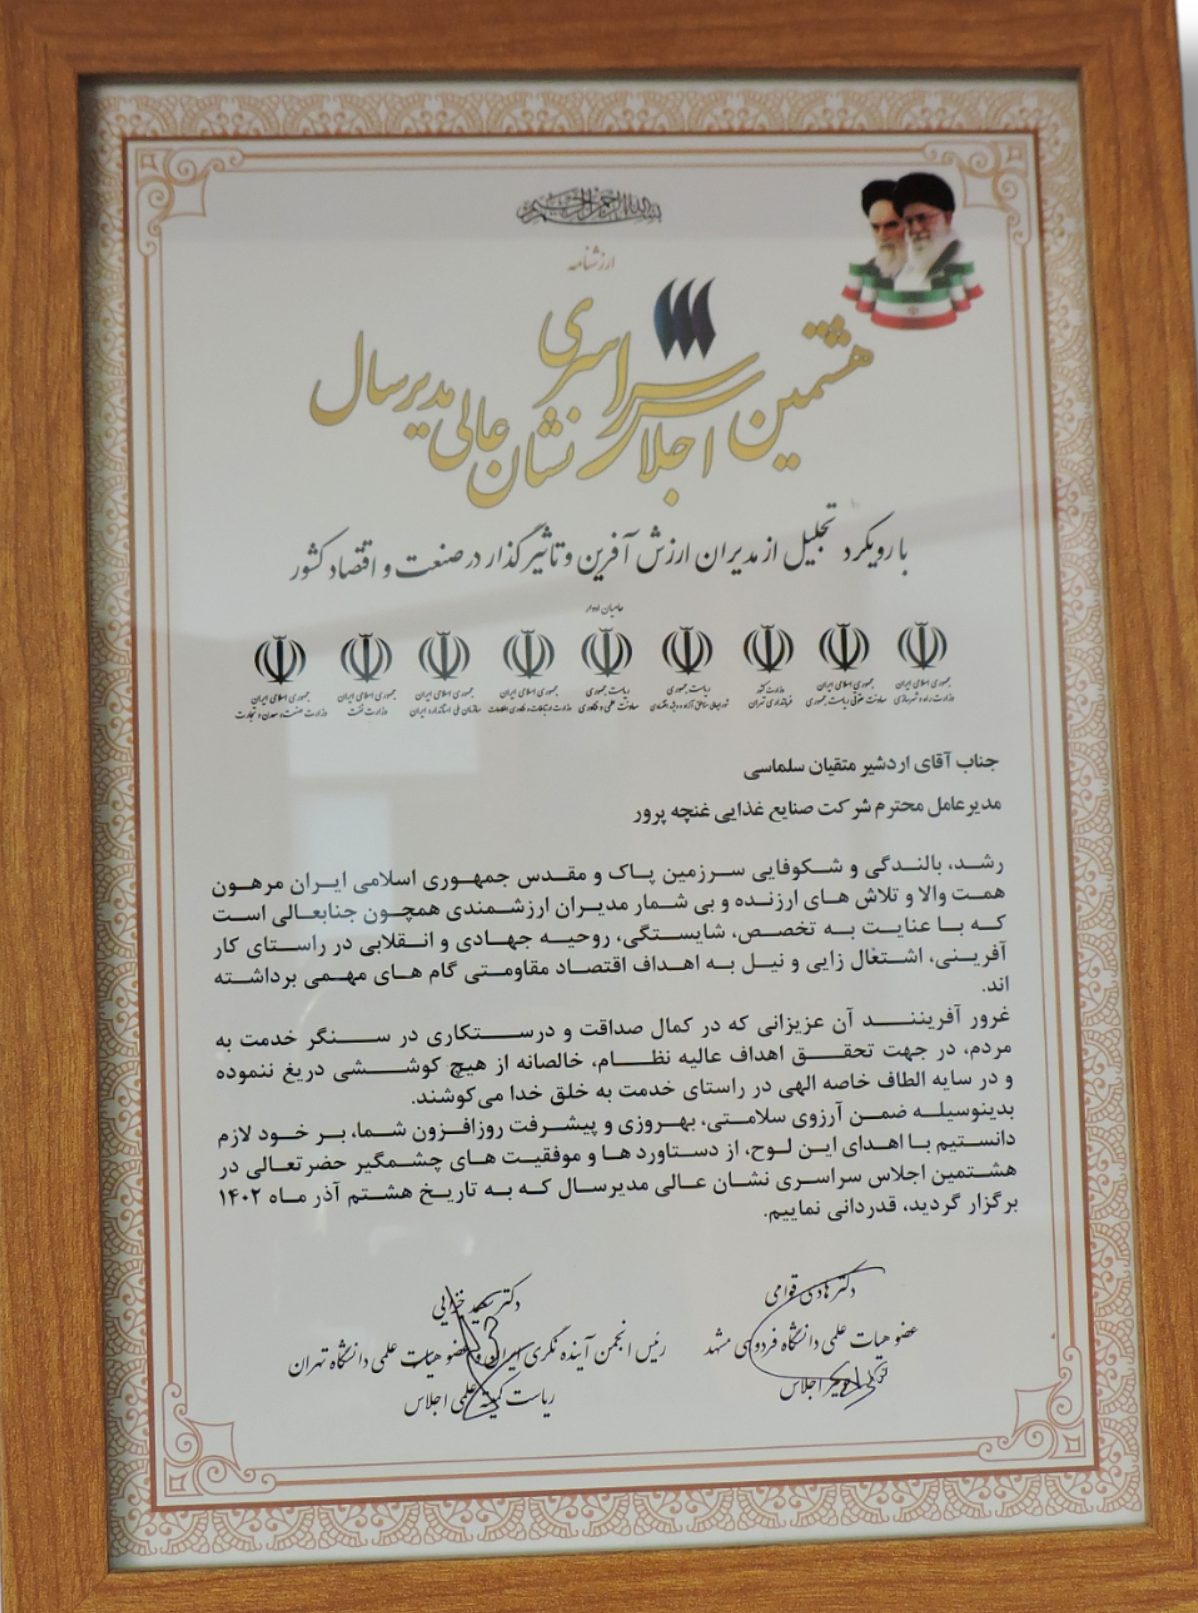 بسم الله الرحمن الرحیم
ارزشنامه
هشتمین اجلاس سراسری نشان عالی مدیر سال
با رویکرد تجلیل از مدیران ارزش آفرین و تاثیر گذار در صنعت و اقتصاد کشور
حامیان ادوار
جمهوری اسلامی ایران
وزارت راه و شهرسازی
جمهوری اسلامی ایران
معاونت حقوقی ریاست جمهوری
وزارت کشور
فرمانداری تهران
ریاست جمهوری
ریاست جمهوری
معاونت علمی و فناوری
جمهوری اسلامی ایران
وزارت ارتباطات و فناوری اطلاعات
جمهوری اسلامی ایران
سازمان ملی استاندارد ایران
جمهوری اسلامی ایران
وزارت نفت
جمهوری اسلامی ایران
وزارت صنعت، معدن و تجارت
جناب آقای اردشیر متقیان سلماسی
مدیرعامل محترم شرکت صنایع غذایی غنچه پرور
رشد، بالندگی و شکوفایی سرزمین پاک و مقدس جمهوری اسلامی ایران مرهون
همت والا و تلاش های ارزنده و بی شمار مدیران ارزشمندی همچون جنابعالی است
که با عنایت به تخصص، شایستگی، روحیه جهادی و انقلابی در راستای کار
آفرینی، اشتغال زایی و نیل به اهداف اقتصاد مقاومتی گام های مهمی برداشته
اند.
غرور آفرینند آن عزیزانی که در کمال صداقت و درستکاری در سنگر خدمت به
مردم، در جهت تحقق اهداف عالیه نظام، خالصانه از هیچ کوششی دریغ ننموده
و در سایه الطاف خاصه الهی در راستای خدمت به خلق خدا می‌کوشند.
بدینوسیله ضمن آرزوی سلامتی، بهروزی و پیشرفت روزافزون شما، بر خود لازم
دانستیم با اهدای این لوح، از دستاورد ها و موفقیت های چشمگیر حضرتعالی در
هشتمین اجلاس سراسری نشان عالی مدیرسال که به تاریخ هشتم آذر ماه ۱۴۰۲
برگزار گردید، قدردانی نماییم.
دکتر هادی قوامی
عضو هیات علمی دانشگاه فردوسی مشهد
دبیر اجلاس
دکتر سعید خزایی
رئیس انجمن آینده نگری ایران و عضو هیات علمی دانشگاه تهران
ریاست کمیته علمی اجلاس